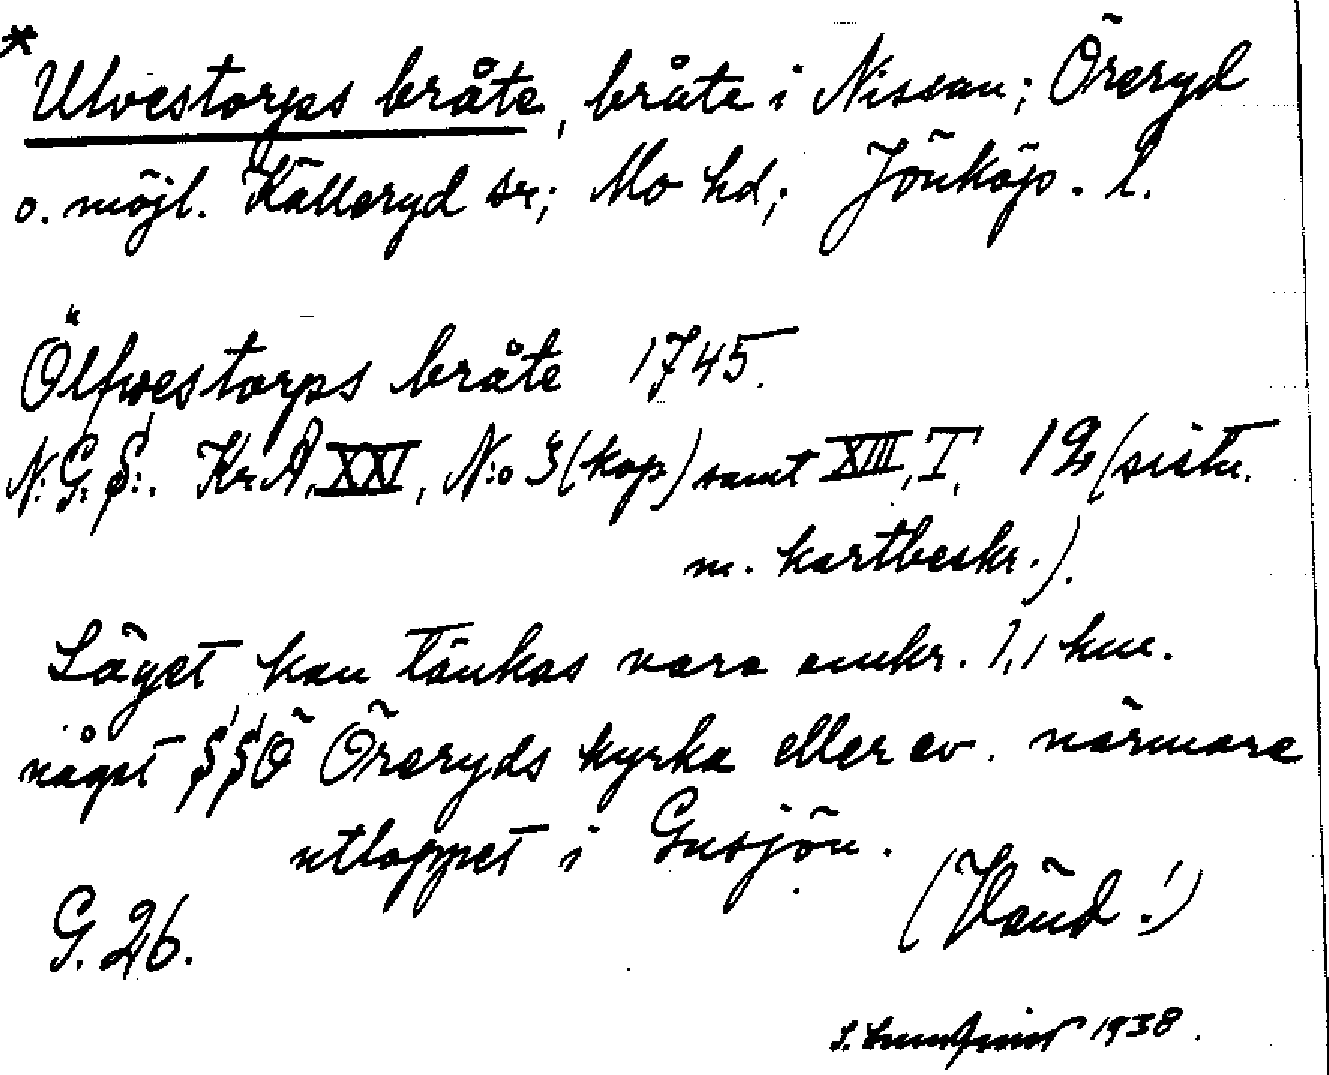 * Ulvestorps bråte, bråte i Nissan; Öreryd
o. möjl. Källeryd sn; Mo hd; Jönköp. l.
Ölfwestorps bråte 1745.
N. G. S:. Kr. A. XXI, N:o 3 (kop) samt XIII, I, 12 (sistn.
m. kartbeskr.).
Läget kan tänkas vara omkr. 1,1 km.
något SSÖ Öreryds kyrka eller ev. närmare
utloppet i Gusjön.
(Vänd!)
G. 26.
1938.